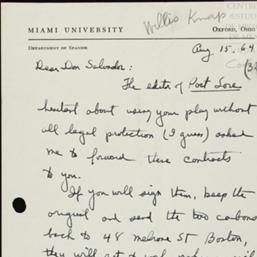 Willis Knapp
MIAMI UNIVERSITY
OXFORD, OHIO
DEPARTMENT OF SPANISH
Aug 15, 64
Dear Don Salvador:
The editor of Poet Lore
hesitant about using your play without
all legal protection (I guess) asked
me to forward these contracts
to you.
If you will sign them, keep the
original and send the two carbons
back to 48 Melrose St Boston,
they will get